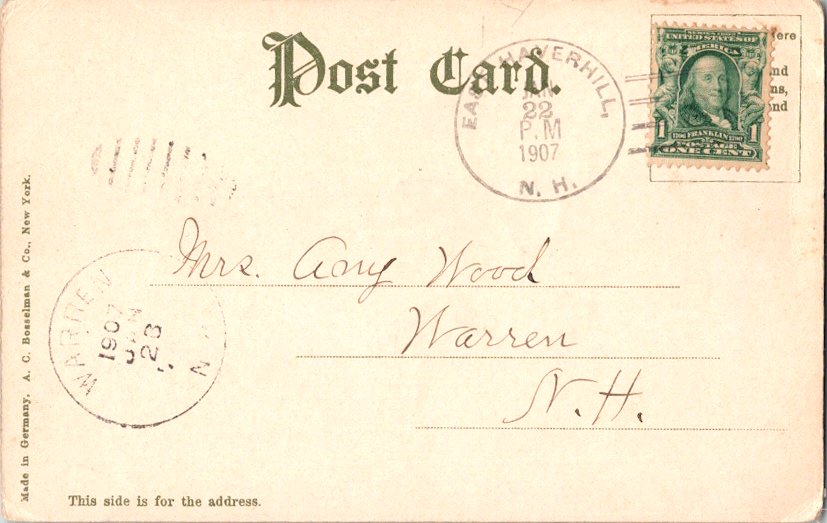 Post Card.
EAST HAVERHILL,
JAN
22
P.M
1907
N. H.
SERIES 1902
UNITED STATES OF
AMERICA
1 FRANKLIN 1
POSTAGE
ONE CENT
ere
nd
ns,
and
Mrs. Amy Wood
Warren
N. H.
WARREN
1907
JAN
23
N
Made in Germany, A. C. Bosselman & Co., New York.
This side is for the address.